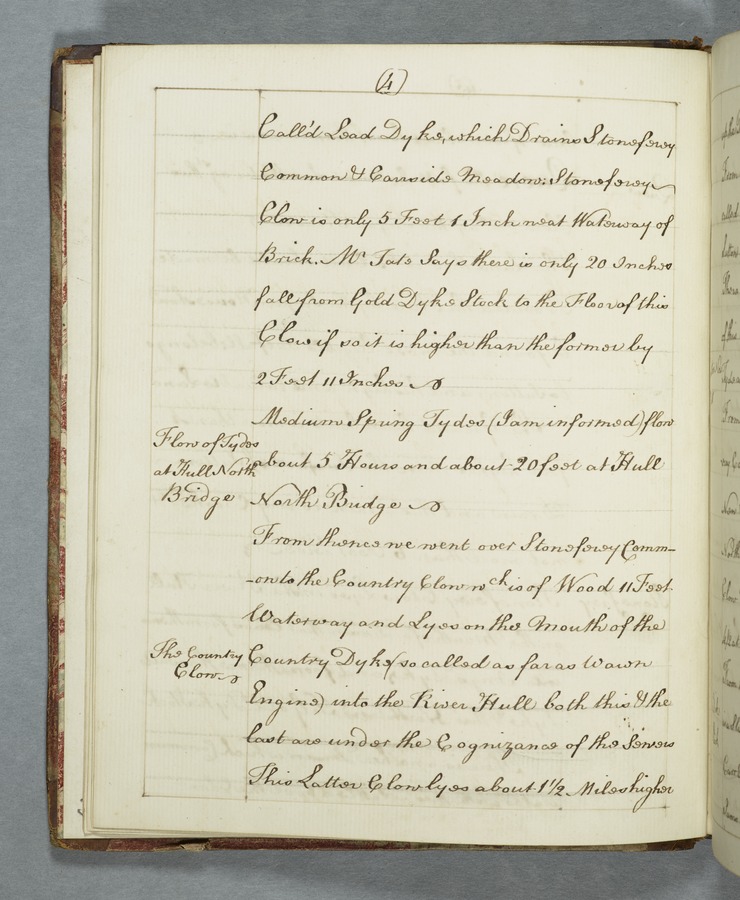 (4)
Call'd Lead Dyke, which Drains Stoneferey
Common & Carrside Meadow. Stoneferey
Clow is only 5 Feet 1 Inch neat Waterway of
Brick. Mr Tate Says there is only 20 Inches
fall from Gold Dyke Stock to the Floor of this
Clow if so it is higher than the former by
2 Feet 11 Inches
Medium Spring Tydes (I am informed) flow
Flow of Tydes
at Hull North
Bridge
about 5 Hours and about 20 feet at Hull
North Bridge
From thence we went over Stoneferey Comm-
-on to the Country Clow wch is of Wood 11 Feet
Waterway and Lyes on the Mouth of the
The Country
Clow
Country Dyke (so called as far as Wawn
Engine) into the River Hull both this & the
last are under the Cognizance of the Sewers
This Latter Clow lyes about 1 1/2 Miles higher